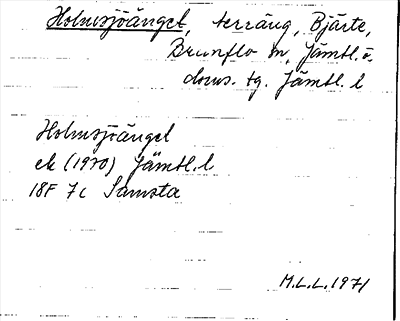 Holmsjöänget, terräng, Bjärte,
Brunflo sn, Jämtl. ö.
doms. tg. Jämtl. l
Holmsjöänget
ek (1970) Jämtl. l
18F 7c Samsta
M.L.L. 1971